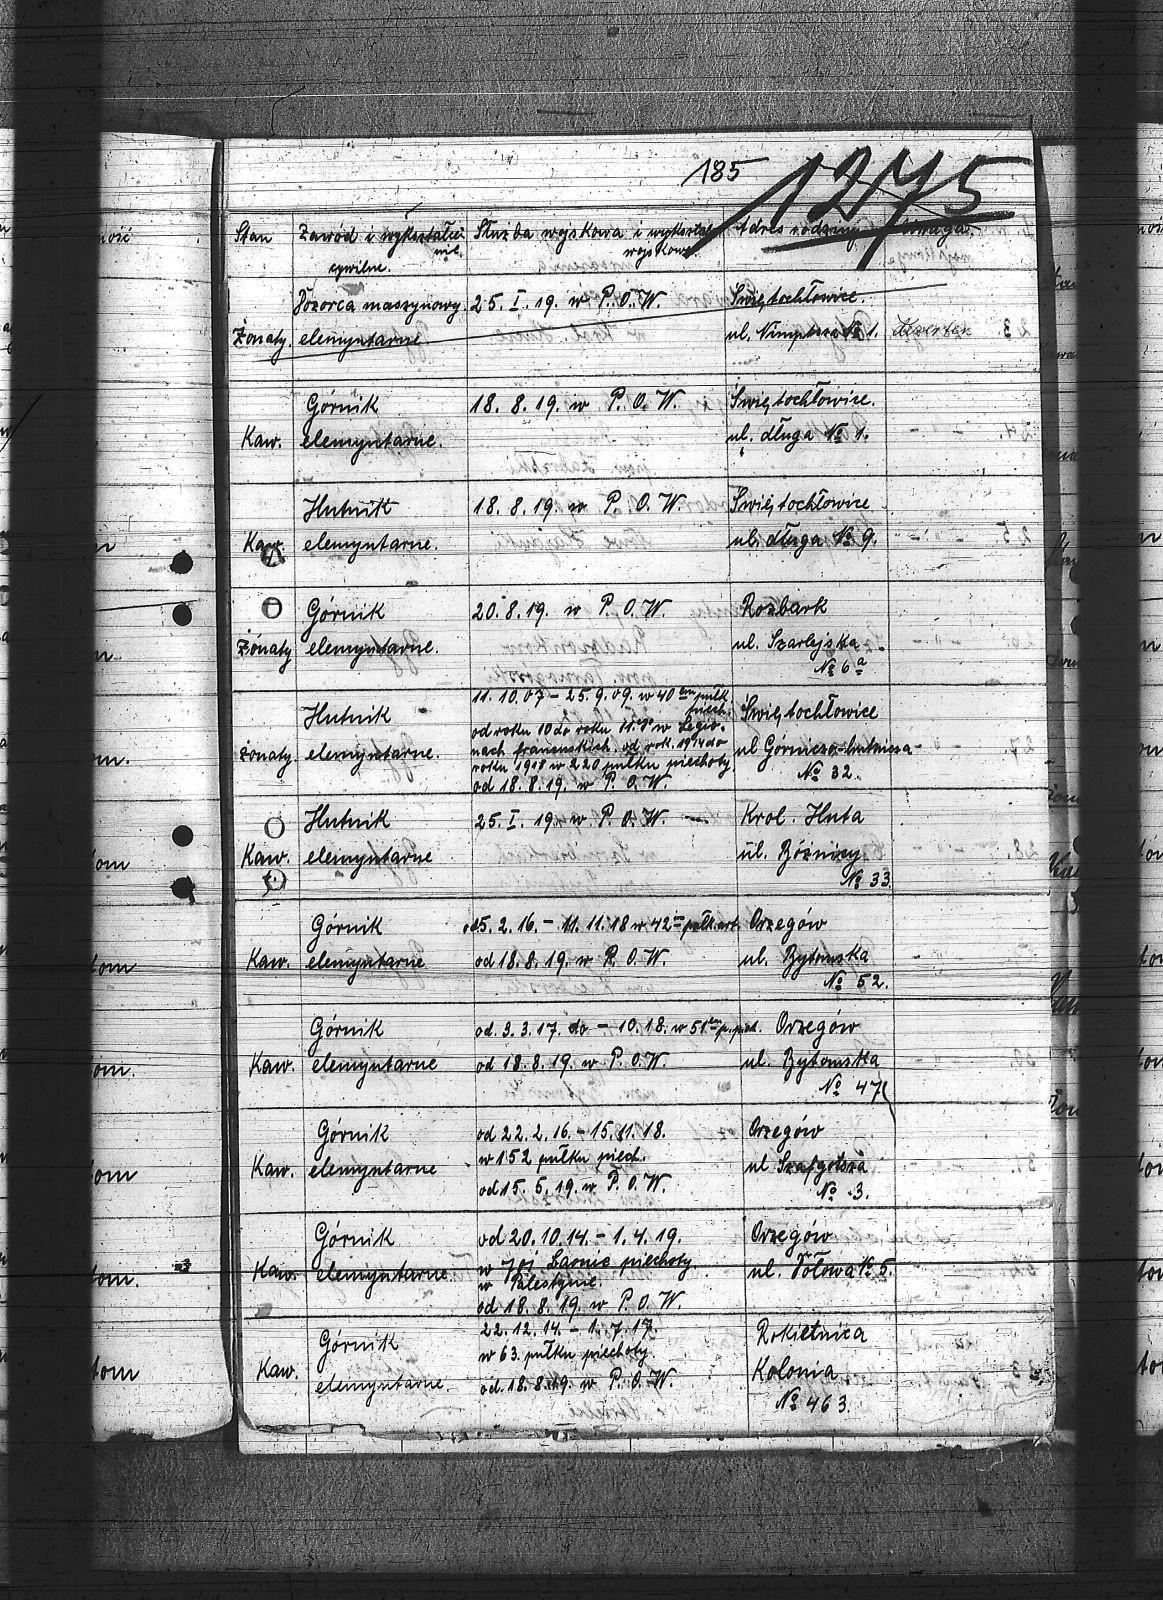 185 1275
Stan Zawód i wykształce- Służba wojskowa i wykształc. Adres rodziny Uwaga.
nie. wojskowe.
cywilne.
Dozorca maszynowy. 25. I. 19. w P. O. W. Świętochłowice.
Żonaty. elemyntarne. ul. № 1.
Górnik 18. 8. 19. w P. O. W. Świętochłowice.
Kaw. elemyntarne. ul. długa № 1.
Hutnik 18. 8. 19. w P. O. W. Świętochłowice
Kaw. elemyntarne. ul. długa № 9.
Górnik 20. 8. 19. w P. O. W. Rozbark
Żonaty elemyntarne. ul. Szarlejska
№ 6a
11. 10. 07 – 25. 9. 09. w 40 pułk
piech.
Hutnik Świętochłowice
od roku 10 do roku w Legio-
nach francuskich. od rok. 1914 do
żonaty. elemyntarne. ul Górniczo-hutnicza
roku 1918 w 220 pułku piechoty.
№ 32.
od 18. 8. 19. w P. O. W.
Hutnik 25. I. 19. w P. O. W. — Krol. Huta
Kaw. elemyntarne ul. Bóżnicy
№ 33
Górnik 5. 2. 16. – 11. 11. 18 w 42 pułk. art. Orzegów
Kaw. elemyntarne od 18. 8. 19. w P. O. W. ul. Bytomska
№ 52.
Górnik od. 3. 3. 17. do – 10. 18. w 51 p. piech. Orzegów
Kaw. elemyntarne od 18. 8. 19. w P. O. W. ul. Bytomska
№ 47
Górnik od 22. 2. 16. – 15. 11. 18. Orzegów
w 152 pułku piech.
Kaw. elemyntarne ul Szafgotsza
od 15. 5. 19. w P. O. W. № 3.
Górnik od 20. 10. 14. – 1. 4. 19. Orzegów
w 701 piechoty
Kaw. elemyntarne. w Palestynie. ul. Polowa № 5.
od 18. 8. 19. w P. O. W.
22. 12. 14. – 1. 7. 17. Rokietnica
Górnik
w 63. pułku piechoty.
Kaw. Kolonia
elemyntarne. od. 18. 8. 19. w P. O. W.
№ 463.